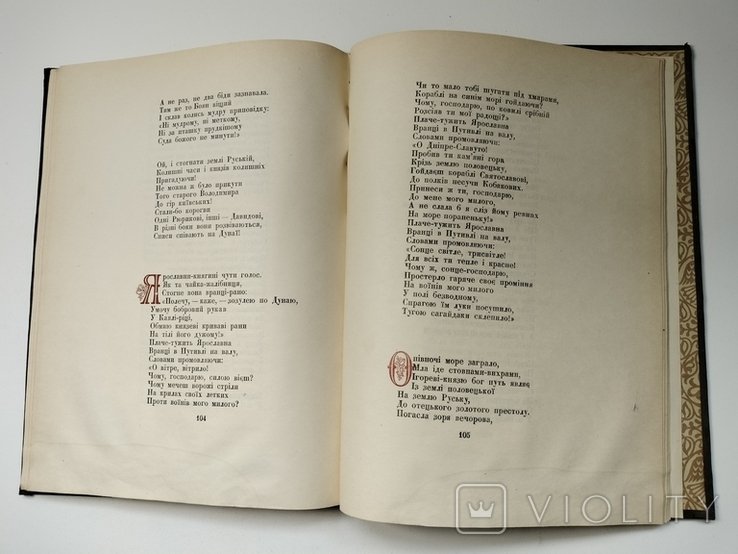 А не раз, не два біди зазнавала.
Там же то Боян віщий
І склав колись мудру приповідку:
«Ні мудрому, ні меткому,
Ні за пташку прудкішому
Суда божого не минути!»
Ой, і стогнати землі Руській,
Колишні часи і князів колишніх
Пригадуючи!
Не можна ж було прикути
Того старого Володимира
До гір київських!
Стали-бо корогви
Одні Рюрикові, інші — Давидові,
В різні боки вони розвіваються,
Списи співають на Дунаї!
Ярославни-княгині чути голос.
Як та чайка-жалібниця,
Стогне вона вранці-рано:
«Полечу, — каже, — зозулею по Дунаю,
Умочу бобровий рукав
У Каялі-ріці,
Обмию князеві криваві рани
На тілі його дужому!»
Плаче-тужить Ярославна
Вранці в Путивлі на валу,
Словами промовляючи:
«О вітре, вітрило!
Чому, господарю, силою вієш?
Чому мечеш ворожі стріли
На крилах своїх легких
Проти воїнів мого милого?
104
Чи то мало тобі шугати під хмарами,
Кораблі на синім морі гойдаючи?
Чому, господарю, по ковилі срібній
Розсіяв ти мої радощі?»
Плаче-тужить Ярославна
Вранці в Путивлі на валу,
Словами промовляючи:
«О Дніпре-Славуто!
Пробив ти кам'яні гори
Крізь землю половецьку,
Гойдаєш кораблі Святославові,
До полків несучи Кобякових.
Принеси ж ти, господарю,
До мене мого милого,
А не слала б я сліз йому ревних
На море пораненьку!»
Плаче-тужить Ярославна
Вранці в Путивлі на валу,
Словами промовляючи:
«Сонце світле, трисвітле!
Для всіх ти тепле і красне!
Чому ж, сонце-господарю,
Простерло гаряче своє проміння
На воїнів мого милого
У полі безводному,
Спрагою їм луки посушило,
Тугою сагайдаки склепило!»
Опівночі море заграло,
Мла іде стовпами-вихрами,
Ігореві-князю бог путь являє
Із землі половецької
На землю Руську,
До отецького золотого престолу.
Погасла зоря вечорова,
105
VIOLITY